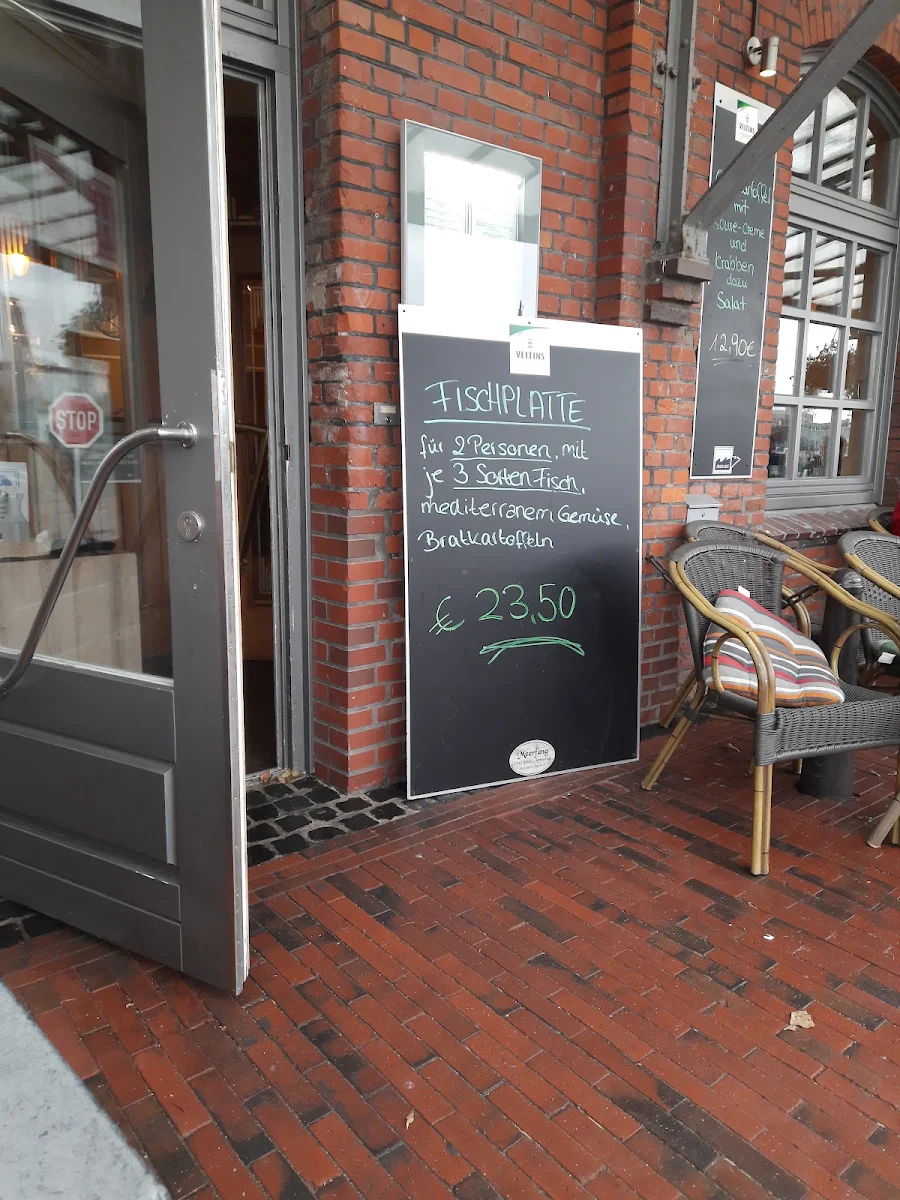 STOP
VELTINS
FISCHPLATTE
für 2 Personen, mit
je 3 Sorten Fisch,
mediterranem Gemüse,
Bratkartoffeln
€ 23,50
Meerfang
VELTINS
mit
Soure-Creme
und
Krabben
dazu
Salat
12,90€